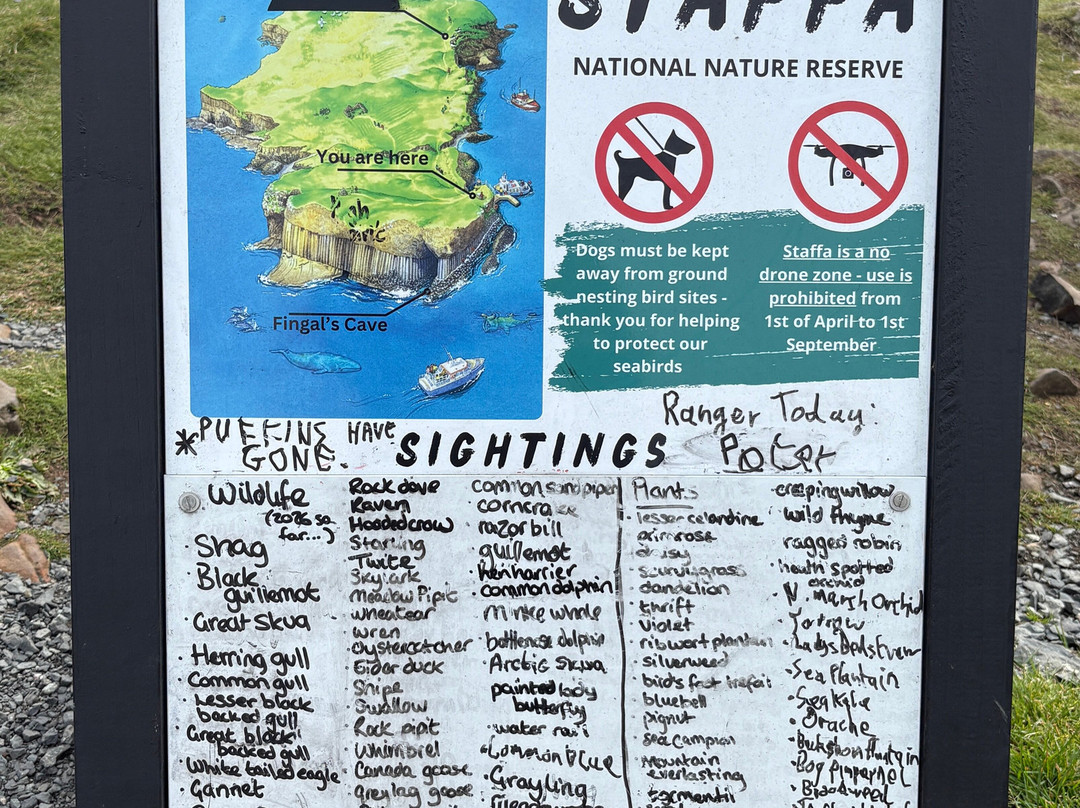 STAFFA
NATIONAL NATURE RESERVE
You are here
Fingal's Cave
Dogs must be kept
away from ground
nesting bird sites -
thank you for helping
to protect our
seabirds
Staffa is a no
drone zone - use is
prohibited from
1st of April to 1st
September
*PUFFINS HAVE
GONE.
SIGHTINGS
Ranger Today:
Wildlife
(2026 so
far...)
· Shag
· Black
guillemot
· Great Skua
· Herring gull
· Common gull
· Lesser black
backed gull
· Great black
backed gull
· White tailed eagle
· Gannet
Rock dove
Raven
Hooded crow
Starling
Twite
Skylark
Meadow Pipit
wheatear
wren
oystercatcher
· Eider duck
· Snipe
· Swallow
· Rock pipit
· Whimbrel
· Canada goose
· Greylag goose
common sandpiper
corncrake
razorbill
· guillemot
· hen harrier
· common dolphin
· minke whale
· bottlenose dolphin
· Arctic Skua
painted lady
butterfly
· water rail
· Common Blue
· Grayling
Plants
· lesser celandine
· primrose
· daisy
· scurvygrass
· dandelion
· thrift
· violet
· ribwort plantain
· silverweed
· bird's foot trefoil
· bluebell
· pignut
· sea campion
· mountain
everlasting
· tormentil
· creeping willow
· wild thyme
· ragged robin
· heath spotted
orchid
· N. Marsh Orchid
· Yarrow
· Ladys Bedstraw
· Sea Plantain
· Sea Kale
· Orache
· Buckshorn Plantain
· Bog Pimpernel